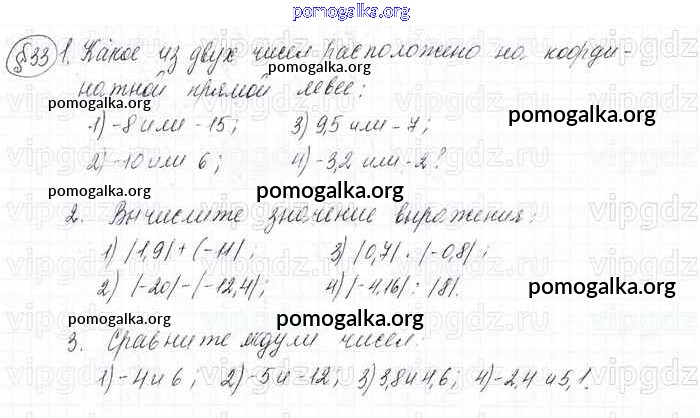 pomogalka.org
§33 1. Какое из двух чисел расположено на коорди-
pomogalka.org
натной прямой левее:
pomogalka.org
1) -8 или -15; 3) 9,5 или -7;
pomogalka.org
2) -10 или 6; 4) -3,2 или -2?
pomogalka.org pomogalka.org
2. Вычислите значение выражения:
1) |1,9| + |-11|; 3) |0,7| · |-0,8|;
2) |-20| - |-12,4|; 4) |-4,16| : |8|.
pomogalka.org
pomogalka.org pomogalka.org
3. Сравните модули чисел:
1) -4 и 6; 2) -5 и -12; 3) 3,8 и 4,6; 4) -2,4 и 5,1.